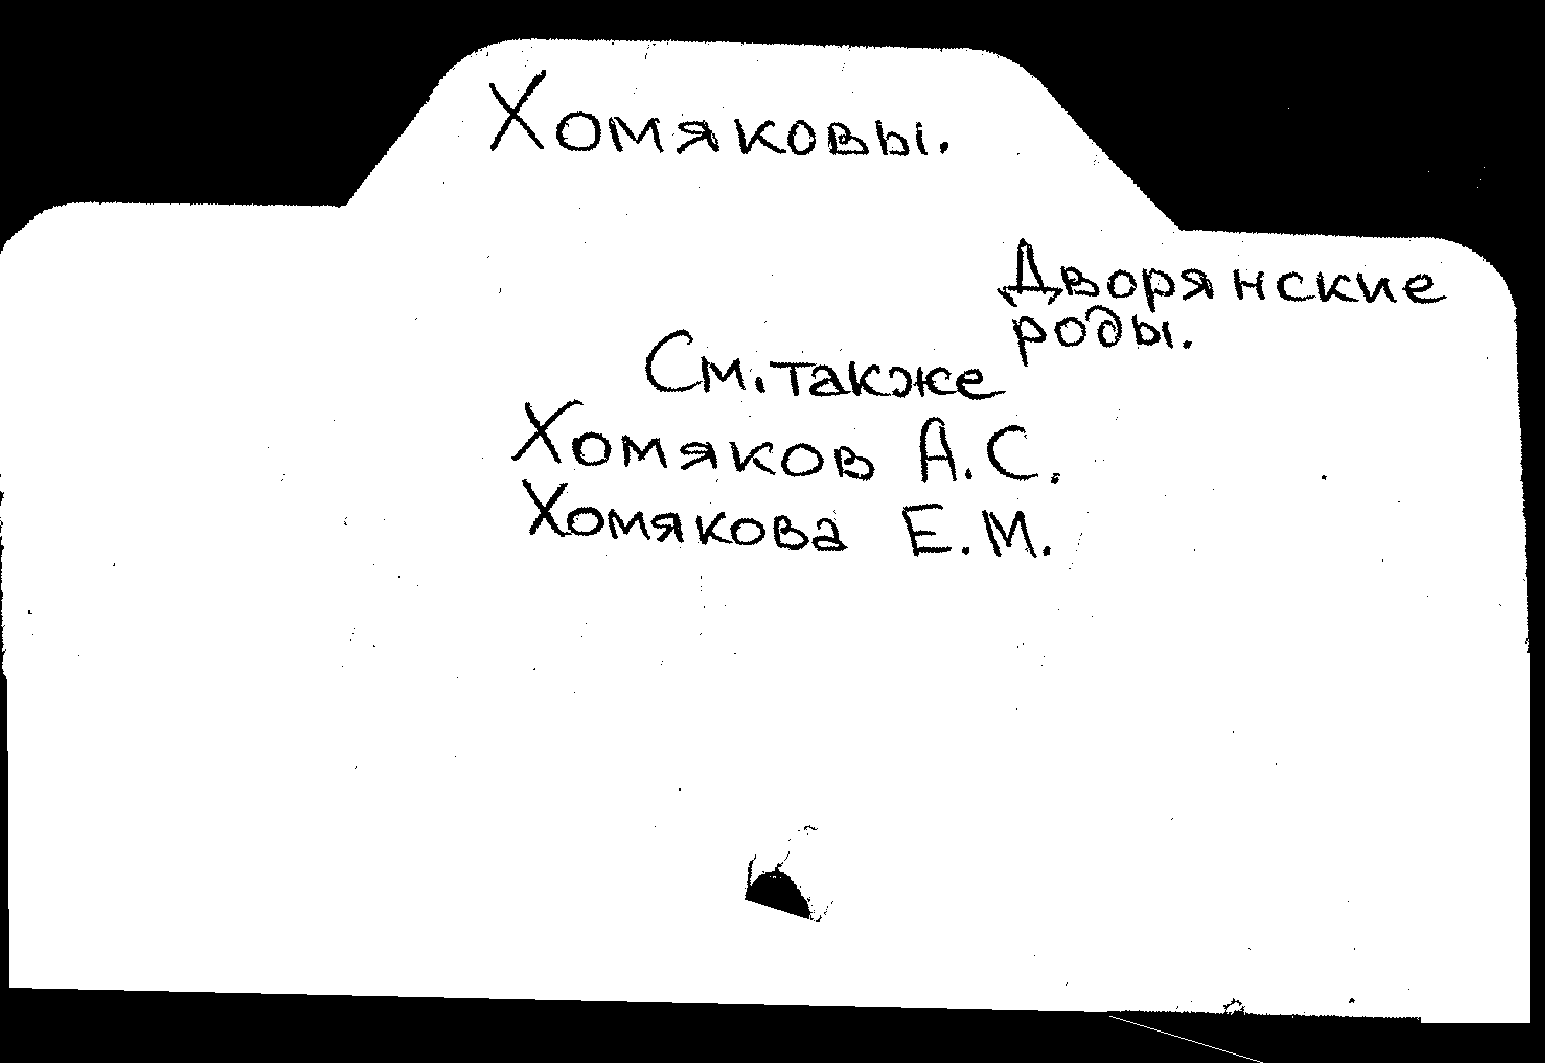 Хомяковы.
Дворянские
роды.
См. также
Хомяков А.С.
Хомякова Е.М.